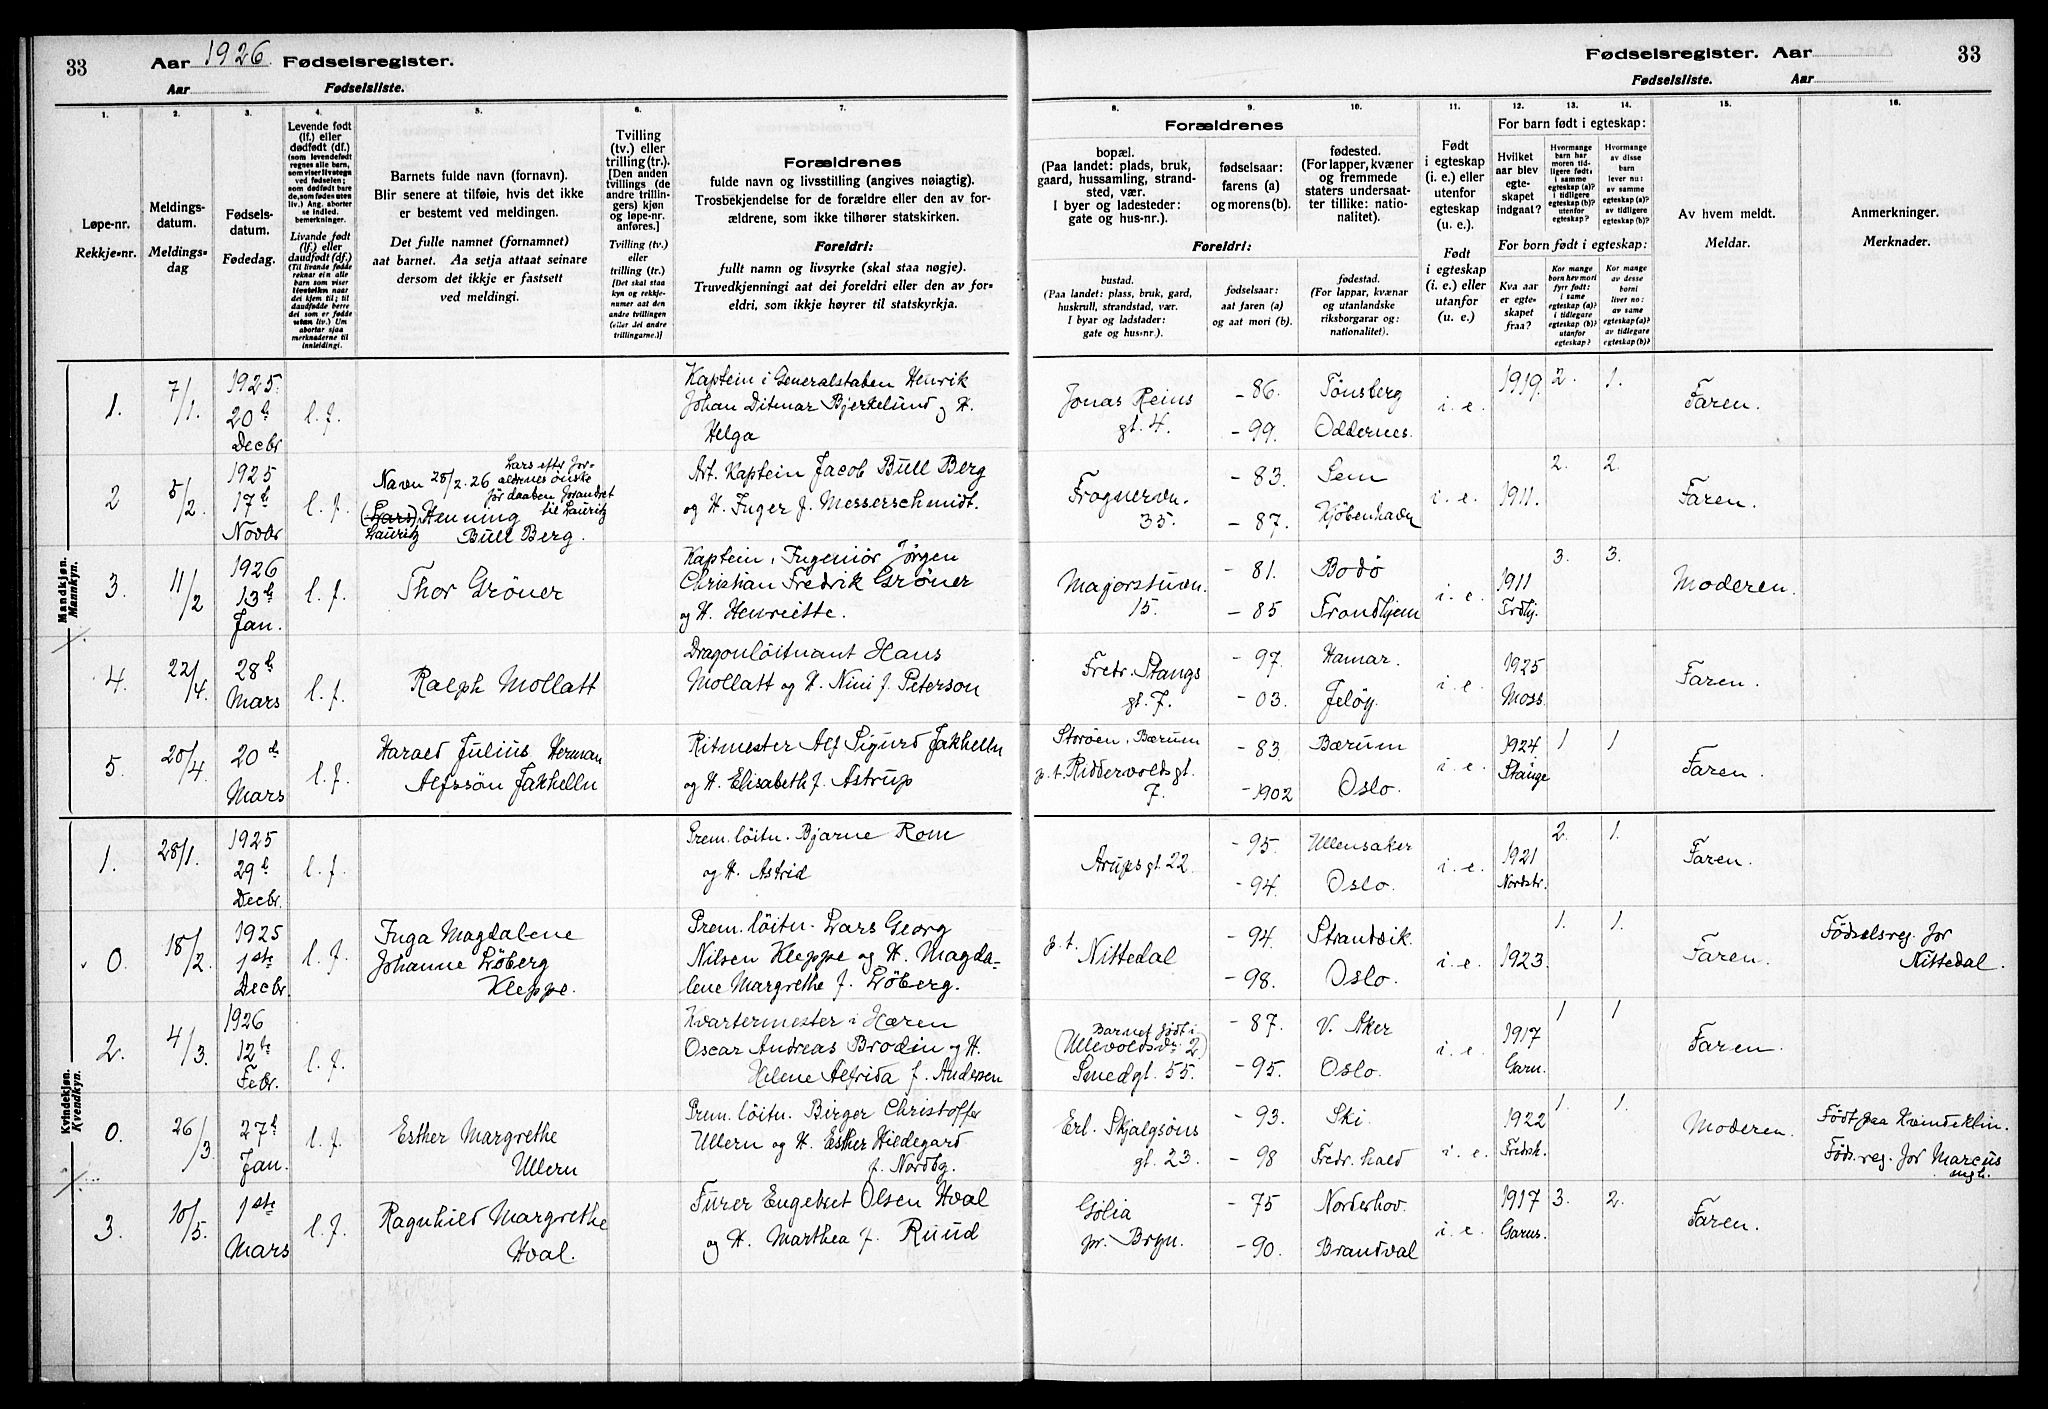 33
Aar 1926. Fødselsregister.
Aar
Fødselsliste.
Fødselsregister. Aar
33
Fødselsliste.
Aar
1.
2.
3.
4.
5.
6.
7.
8.
9.
10.
11.
12.
13.
14.
15.
16.
Løpe-nr.
Rekkje-nr.
Meldings-
datum.
Meldings-
dag
Fødsels-
datum.
Fødedag.
Levende født
(lf.) eller
dødfødt (df.)
(som levendefødt
regnes alle barn,
som viser livstegn
ved fødselen;
som dødfødt bare
de, som fødes uten
liv.) Ang. aborter
se indled.
bemerkninger.
Livande født
(lf.) eller
daudfødt (df.)
(Til livande fødde
reknar ein alle
barn som viser
livsteikn naar
dei kjem til; til
daudfødde berre
dei som er fødde
utan liv.) Um
abortar sjaa
merknaderne til
innleidingi.
Barnets fulde navn (fornavn).
Blir senere at tilføie, hvis det ikke
er bestemt ved meldingen.
Det fulle namnet (fornamnet)
aat barnet. Aa setja attaat seinare
dersom det ikkje er fastsett
ved meldingi.
Tvilling
(tv.) eller
trilling (tr.).
[Den anden
tvillings (de
andre trillin-
gers) kjøn
og løpe-nr.
anføres.]
Tvilling (tv.)
eller
trilling (tr.)
[Det skal staa
kyn og rekkje-
numer aat den
andre tvillingen
(eller dei andre
trillingarne.)]
Forældrenes
fulde navn og livsstilling (angives nøiagtig).
Trosbekjendelse for de forældre eller den av for-
ældrene, som ikke tilhører statskirken.
Foreldri:
fullt namn og livsyrke (skal staa nøgje).
Truvedkjenningi aat dei foreldri eller den av for-
eldri, som ikkje høyrer til statskyrkja.
Forældrenes
bopæl.
(Paa landet: plads, bruk,
gaard, hussamling, strand-
sted, vær.
I byer og ladesteder:
gate og hus-nr.).
fødselsaar:
farens (a)
og morens (b).
fødested.
(For lapper, kvæner
og fremmede
staters undersaat-
ter tillike: natio-
nalitet).
Foreldri:
bustad.
(Paa landet: plass, bruk, gard,
huskrull, strandstad, vær.
I byar og ladstader:
gate og hus-nr.).
fødselsaar:
aat faren (a)
og aat mori (b).
fødestad.
(For lappar, kvænar
og utanlandske
riksborgarar og:
nationalitet).
Født
i egteskap
(i. e.) eller
utenfor
egteskap
(u. e.).
Født
i egteskap
(i. e.) eller
utanfor
(u. e.).
For barn født i egteskap:
Hvilket
aar blev
egte-
skapet
indgaat?
Hvormange
barn har
moren tid-
ligere født:
i samme
egteskap (a)?
i tidligere
egteskap (b)?
utenfor
egteskap?
Hvormange
av disse
barn
lever nu:
av samme
egteskap (a)?
av tidligere
egteskap (b)?
For born født i egteskap:
Kva aar
er egte-
skapet
fraa?
Kor mange
born hev mori
fyrr født:
i same
egteskap (a)?
i tidlegare
egteskap (b)?
utanfor
egteskap?
Kor mange
av desse
borni
liver no:
av same
egteskap (a)?
av tidlegare
egteskap (b)?
Av hvem meldt.
Meldar.
Anmerkninger.
Merknader.
Mandkjøn.
Mannkyn.
1.
7/1.
1925.
20de
Decbr
l. f.
Kaptein i Generalstaben Henrik
Johan Ditmar Bjerkelund og H.
Helga
Jonas Reins
gt. 4.
- 86.
- 99.
Tönsberg
Oddernes.
i. e.
1919.
2.
1.
Faren.
2
5/2.
1925
17de
Novbr
l. f.
Navn 25/2. 26 Lars efter for-
ældrenes önske
för daaben forandret
til Lauritz
(Lars) Henning
Lauritz Bull Berg.
Art. Kaptein Jacob Bull Berg
og H. Inger f. Messerschmidt.
Frognervn.
35.
- 83.
- 87.
Sem
Kjöbenhavn
i. e.
1911.
2.
2.
Faren.
3.
11/2
1926
13de
Jan.
l. f.
Thor Gröner
Kaptein, Ingeniör Jörgen
Christian Fredrik Gröner
og H. Henriette.
Majorstuvn.
15.
- 81.
- 85
Bodö
Trondhjem
i. e.
1911
Trdhj.
3.
3.
Moderen.
4.
22/4.
28de
Mars
l. f.
Ralph Mollatt
Dragonlöitnant Hans
Mollatt og H. Nini f. Peterson
Fredr. Stangs
gt. 7.
- 97.
- 03.
Hamar.
Jelöy.
i. e.
1925
Moss.
Faren.
5.
20/4.
20de
Mars
l. f.
Harald Julius Herman
Alfssön Jakhelln
Ritmester Alf Sigurd Jakhelln
og H. Elisabeth f. Astrup
Storöen, Bærum
p.t. Riddervoldsgt.
7.
- 83.
- 1902
Bærum
Oslo.
i. e.
1924
Stange
1
1
Faren.
Kvindekjøn.
Kvendkyn.
1.
28/1.
1925
29de
Decbr.
l. f.
Prem. löitn. Bjarne Rom
og H. Astrid
Arupsgt. 22.
- 95.
- 94.
Ullensaker
Oslo.
i. e.
1921
Nordstr.
2.
1.
Faren.
0.
18/2.
1925
1ste
Decbr.
l. f.
Inga Magdalene
Johanne Löberg
Kleppe.
Prem. löitn. Lars Georg
Nilsen Kleppe og H. Magda-
lene Margrethe f. Löberg.
p.t. Nittedal
- 94.
- 98.
Strandvik.
Oslo.
i. e.
1923.
1.
1.
Faren.
Födselsreg. for
Nittedal.
2.
4/3.
1926
12te
Febr.
l. f.
Kvartermester i Hæren
Oscar Andreas Brodin og H.
Helene Alfrida f. Andersen
Barnet født i
(Ullevoldsvn. 2)
Smedgt. 55.
- 87.
- 95.
V. Aker
Oslo.
i. e.
1917
Garn.
1
1
Faren.
0.
26/3.
27de
Jan.
l. f.
Esther Margrethe
Ullern
Prem. löitn. Birger Christoffer
Ullern og H. Esther Hildegard
f. Nordbg.
Erl. Skjalgsöns
gt. 23.
- 93.
- 98
Ski.
Fredr. hald
i. e.
1922
Fredsk.
1
1.
Moderen.
Födt paa Kvindeklin.
Föds. reg. for Marcus
mgh.
3.
10/5.
1ste
Mars
l. f.
Ragnhild Margrethe
Hval.
Furer Engebret Olsen Hval
og H. Marthea f. Ruud
Gölia
pr. Bryn.
- 75
- 90.
Norderhov.
Brandval
i. e.
1917
Garns.
3.
2.
Faren.